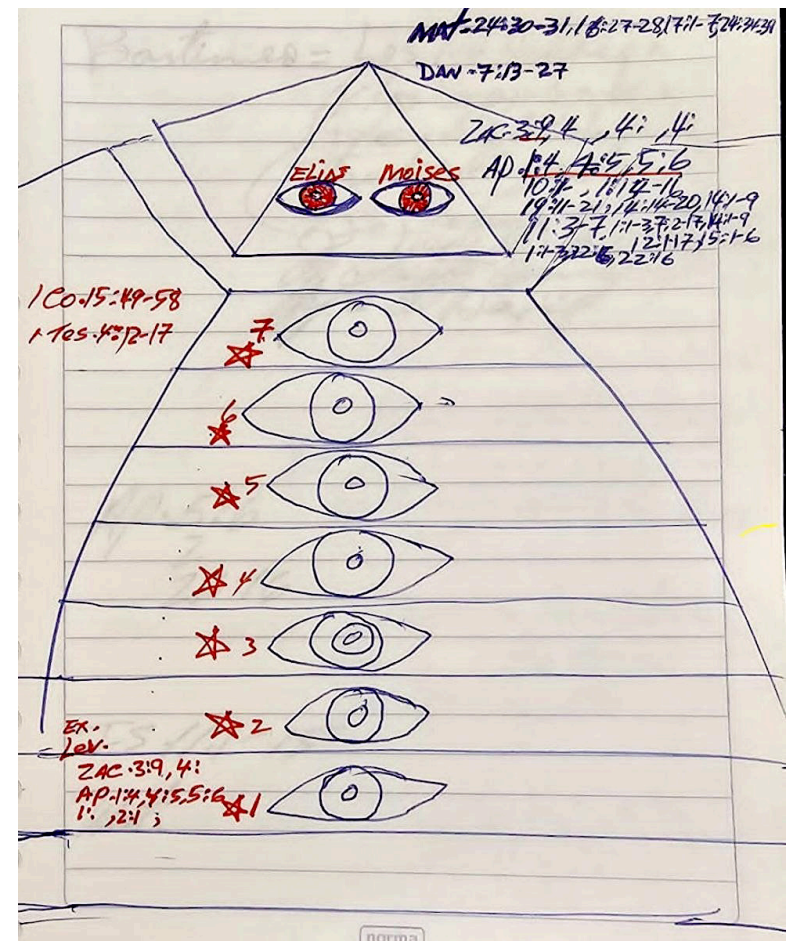 MAT-24:30-31,16:27-28,17:1-7,24:34-39
DAN-7:13-27
ZAC-3:9,4 ,4: ,4:
AP.1:4,4:5,5:6
10:1- ,1:12-16
19:11-21,14:14-20,14:1-9
11:3-7,1:1-3,7:2-17,14:1-9
1:1-3,22:6,22:16
12:1-17,15:1-6
Elias Moises
1 Co.15:49-58
1 Tes.4:12-17
7
6
5
4
3
2
Ex.
Lev.
ZAC.3:9,4:
AP.1:4,4:5,5:6
1: ,2:1;
1
norma